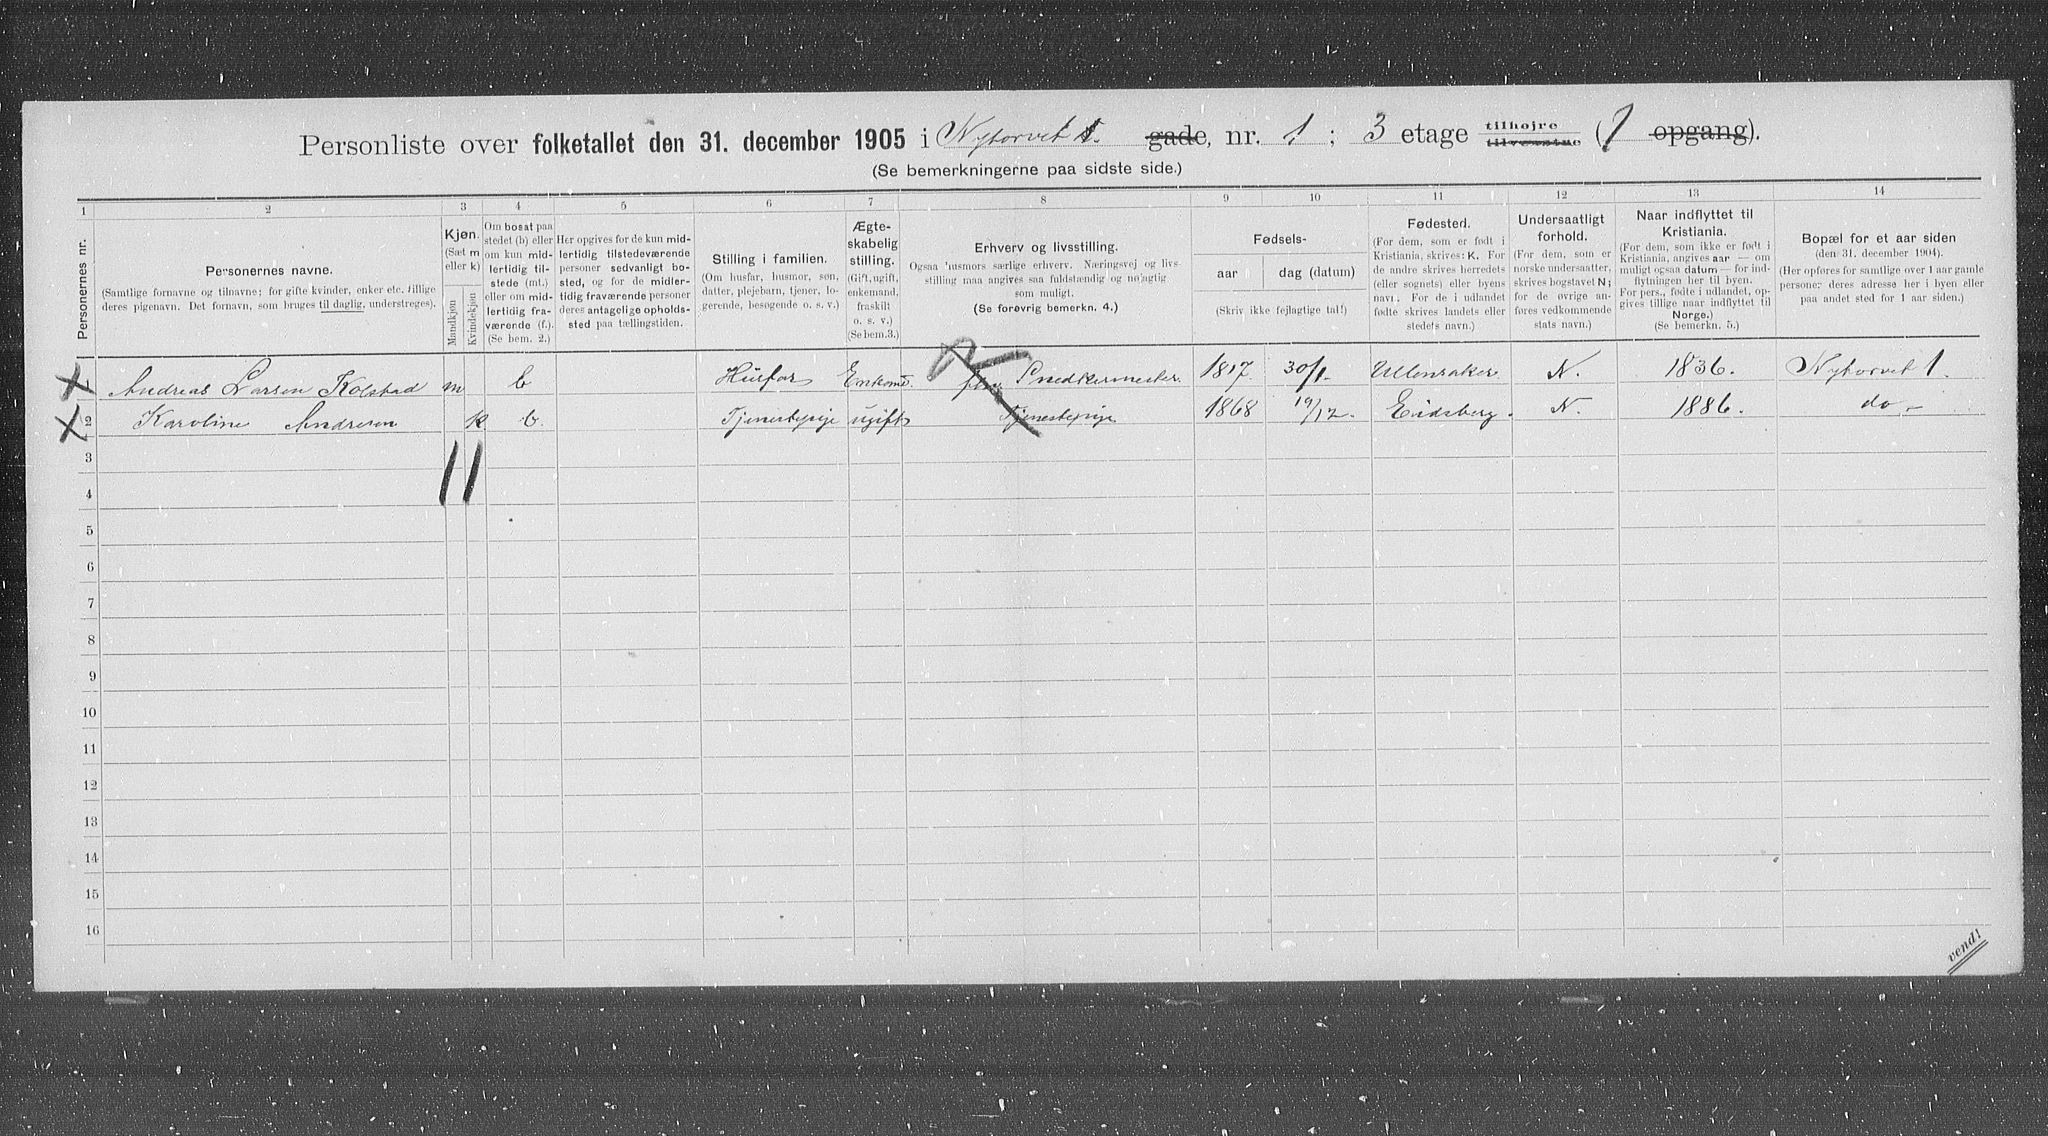 Personliste over folketallet den 31. december 1905 i Nytorvet 1. gade, nr. 1 ; 3 etage tilhøjre tilvenstre (1 opgang).
(Se bemerkningerne paa sidste side.)
1 2 3 4 5 6 7 8 9 10 11 12 13 14
Personernes nr.
Personernes navne.
(Samtlige fornavne og tilnavne; for gifte kvinder, enker etc. tillige
deres pigenavn. Det fornavn, som bruges til daglig, understreges).
Kjøn.
(Sæt m
eller k)
Mandkjøn
Kvindekjøn
Om bosat paa
stedet (b) eller
om kun mid-
lertidig til-
stede (mt.)
eller om mid-
lertidig fra-
værende (f.).
(Se bem. 2.)
Her opgives for de kun mid-
lertidig tilstedeværende
personer sedvanlig bo-
sted, og for de midler-
tidig fraværende personer
deres antagelige opholds-
sted paa tællingstiden.
Stilling i familien.
(Om husfar, husmor, søn,
datter, plejebarn, tjener, lo-
gerende, besøgende o. s. v.)
Ægte-
skabelig
stilling.
(Gift, ugift,
enkemand,
fraskilt
o. s. v.)
(Se bem.3.)
Erhverv og livsstilling.
Ogsaa husmors særlige erhverv. Næringsvej og livs-
stilling maa angives saa fuldstændig og nøjagtig
som muligt.
(Se forøvrig bemerkn. 4.)
Fødsels-
aar dag (datum)
(Skriv ikke fejlagtige tal!)
Fødested.
(For dem, som er født i
Kristiania, skrives: K. For
de andre skrives herredets
(eller sognets) eller byens
navn. For de i udlandet
fødte skrives landets eller
stedets navn.)
Undersaatligt
forhold.
(For dem, som er
norske undersaatter,
skrives bogstavet N;
for de øvrige an-
føres vedkommende
stats navn.)
Naar indflyttet til
Kristiania.
(For dem, som ikke er født i
Kristiania, angives aar — om
muligt ogsaa datum — for ind-
flytningen her til byen.
For pers., fødte i udlandet, op-
gives tillige naar indflyttet til
Norge.)
(Se bemerkn. 5.)
Bopæl for et aar siden
(den 31. december 1904).
(Her opføres for samtlige over 1 aar gamle
personer deres adresse her i byen eller
paa andet sted for 1 aar siden.)
1 Andreas Larsen Kolstad m b Husfar Enkemd. Snedkermester 1817 30/1. Ullensaker N. 1836. Nytorvet 1.
2 Karoline Andresen k b. Tjenestepige ugift Tjenestepige 1868 19/12. Eidsberg. N. 1886. do -
11
3
4
5
6
7
8
9
10
11
12
13
14
15
16
vend!